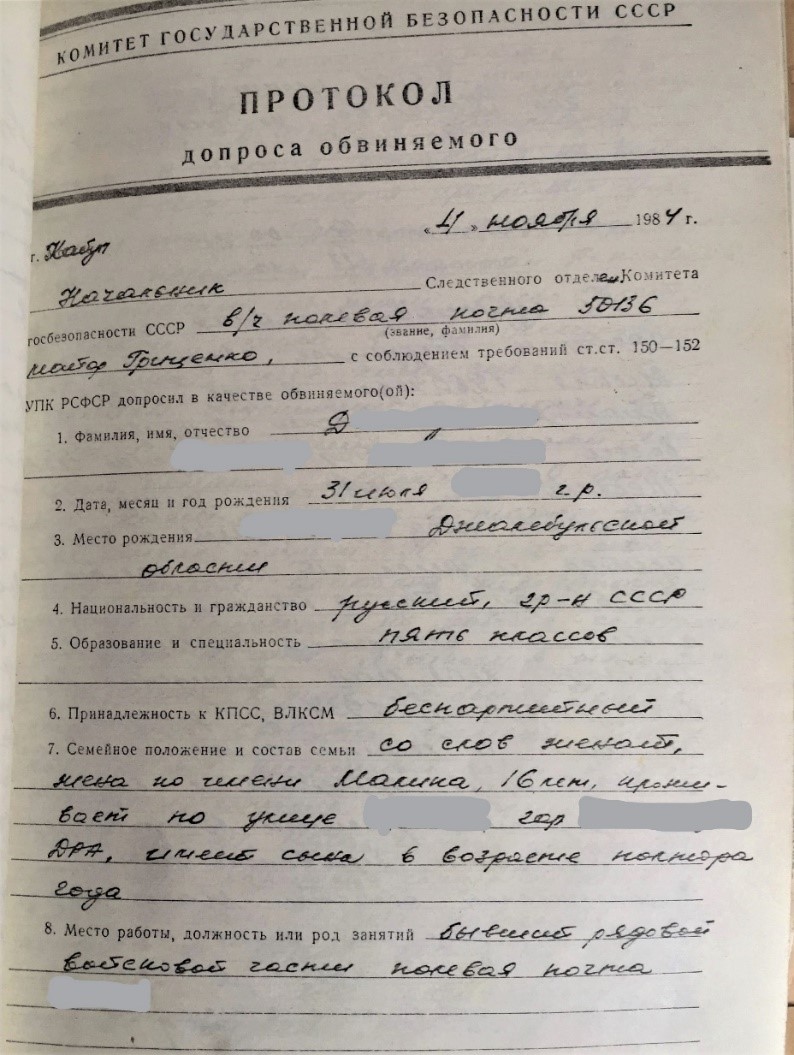 КОМИТЕТ ГОСУДАРСТВЕННОЙ БЕЗОПАСНОСТИ СССР
ПРОТОКОЛ
допроса обвиняемого
«4» ноября 1984 г.
г. Кабул
Начальник Следственного отдела Комитета
госбезопасности СССР в/ч полевая почта 50136
(звание, фамилия)
майор Грищенко, с соблюдением требований ст.ст. 150—152
УПК РСФСР допросил в качестве обвиняемого(ой):
1. Фамилия, имя, отчество Д
2. Дата, месяц и год рождения 31 июля г.р.
3. Место рождения Джамбульской
области
4. Национальность и гражданство русский, гр-н СССР
5. Образование и специальность пять классов
6. Принадлежность к КПСС, ВЛКСМ беспартийный
7. Семейное положение и состав семьи со слов женат,
жена по имени Малина, 16 лет, прожи-
вает по улице гор
ДРА, имеет сына в возрасте полтора
года
8. Место работы, должность или род занятий бывший рядовой
войсковой части полевая почта